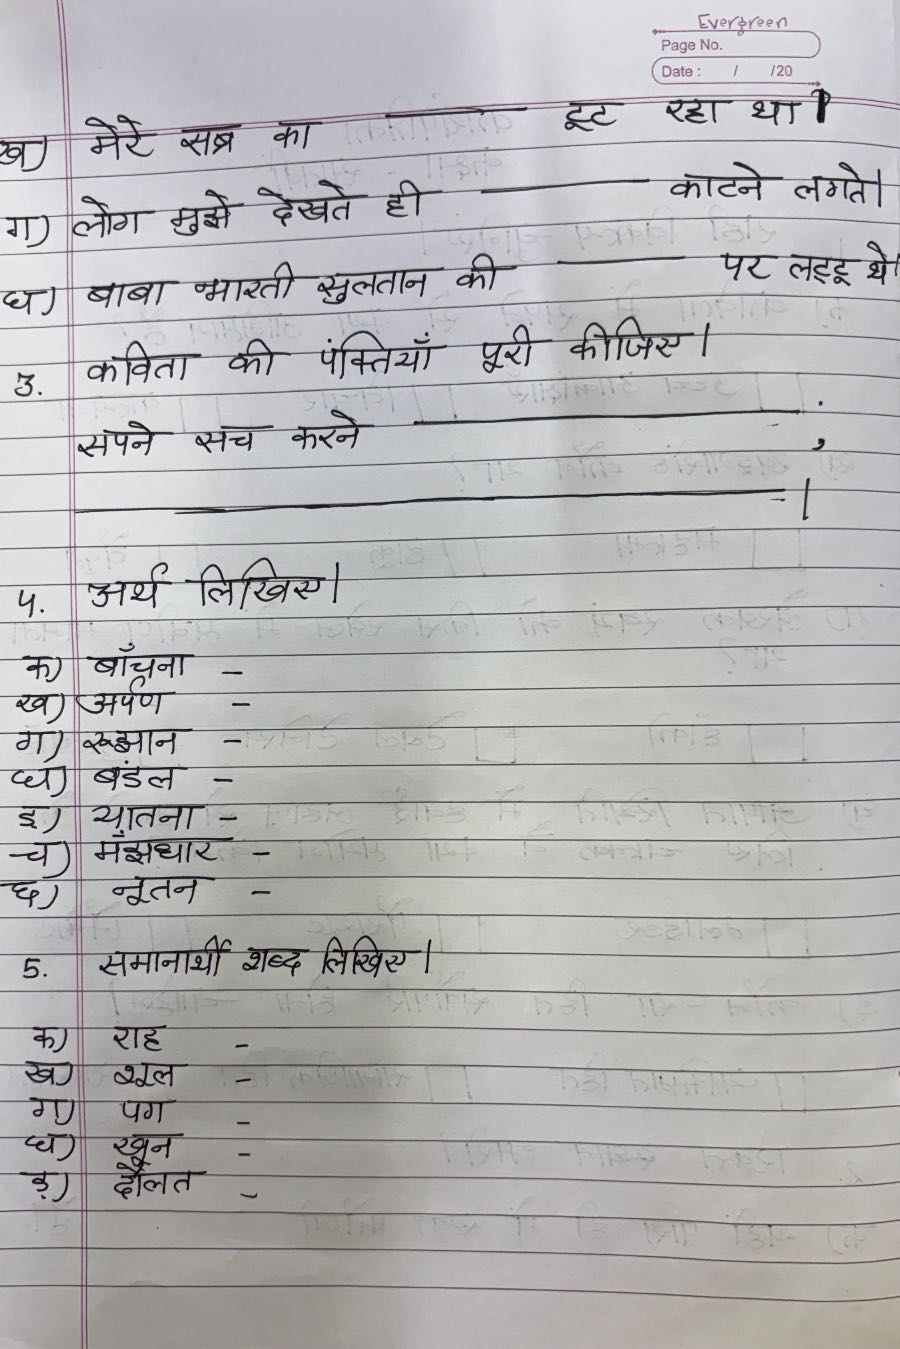 Evergreen
Page No.
Date : / /20
ख) मेरे सब्र का ______ टूट रहा था।
ग) लोग मुझे देखते ही ______ काटने लगते।
घ) बाबा भारती सुलतान की ______ पर लट्टू थे।
3. कविता की पंक्तियाँ पूरी कीजिए।
सपने सच करने ______ ,
______ ।
4. अर्थ लिखिए।
क) बाँचना -
ख) अर्पण -
ग) रूझान -
घ) बंडल -
ङ) यातना -
च) मँझधार -
छ) नूतन -
5. समानार्थी शब्द लिखिए।
क) राह -
ख) शूल -
ग) पग -
घ) खून -
ङ) दौलत -